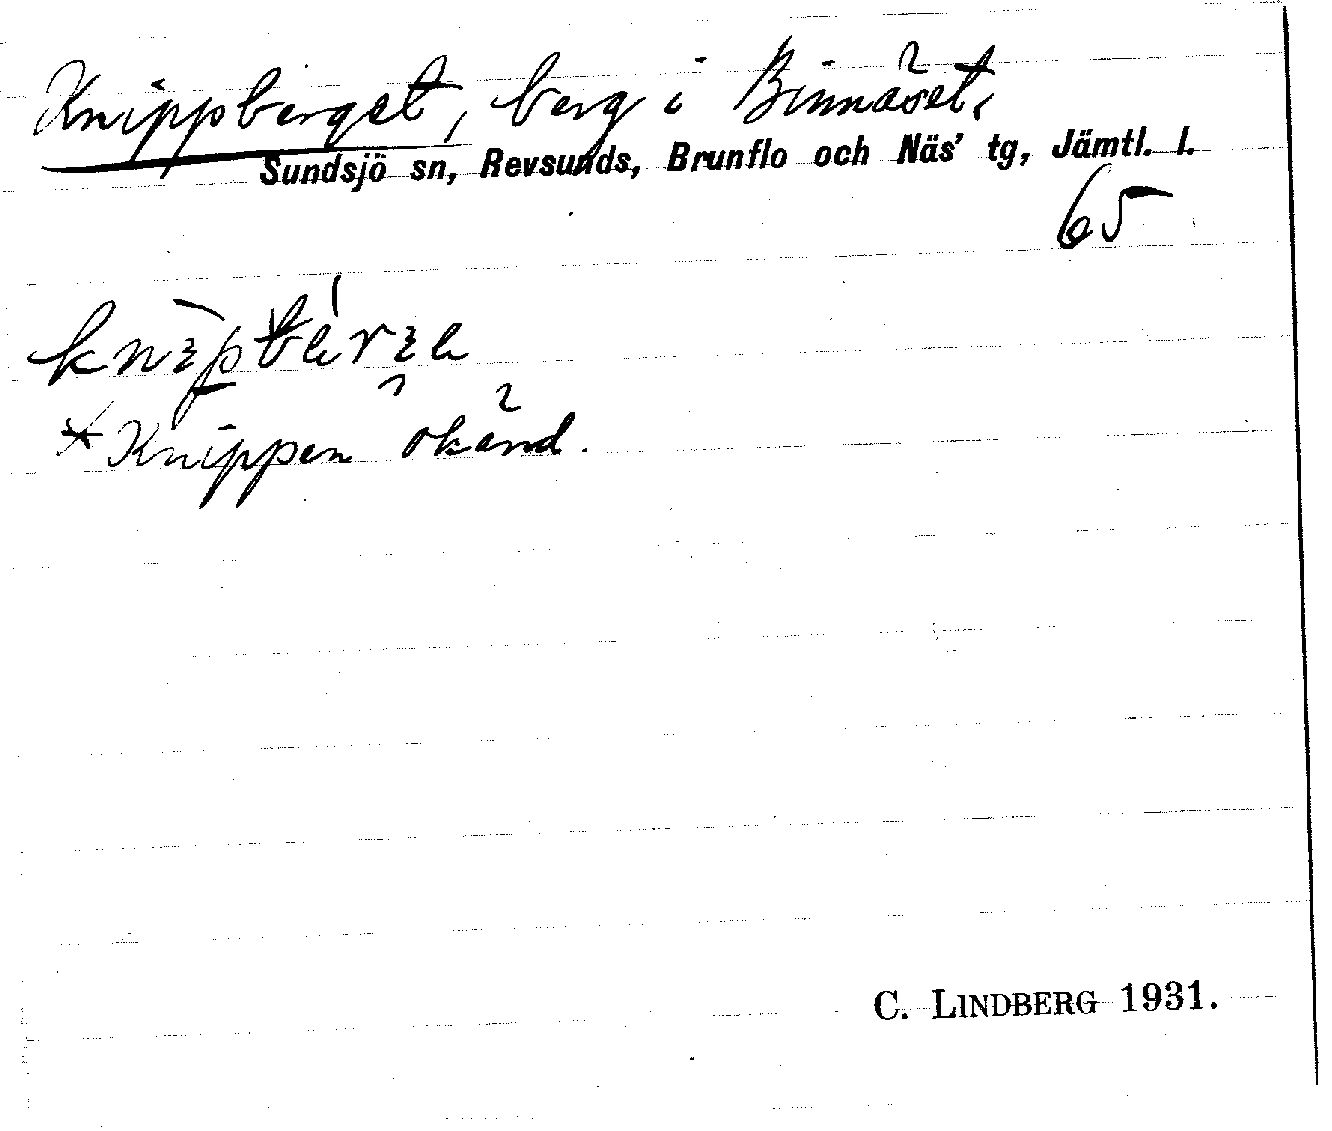 Knippberget, berg i Binnåset,
Sundsjö sn, Revsunds, Brunflo och Näs' tg, Jämtl. l.
65
*Knippen okänd.
C. LINDBERG 1931.